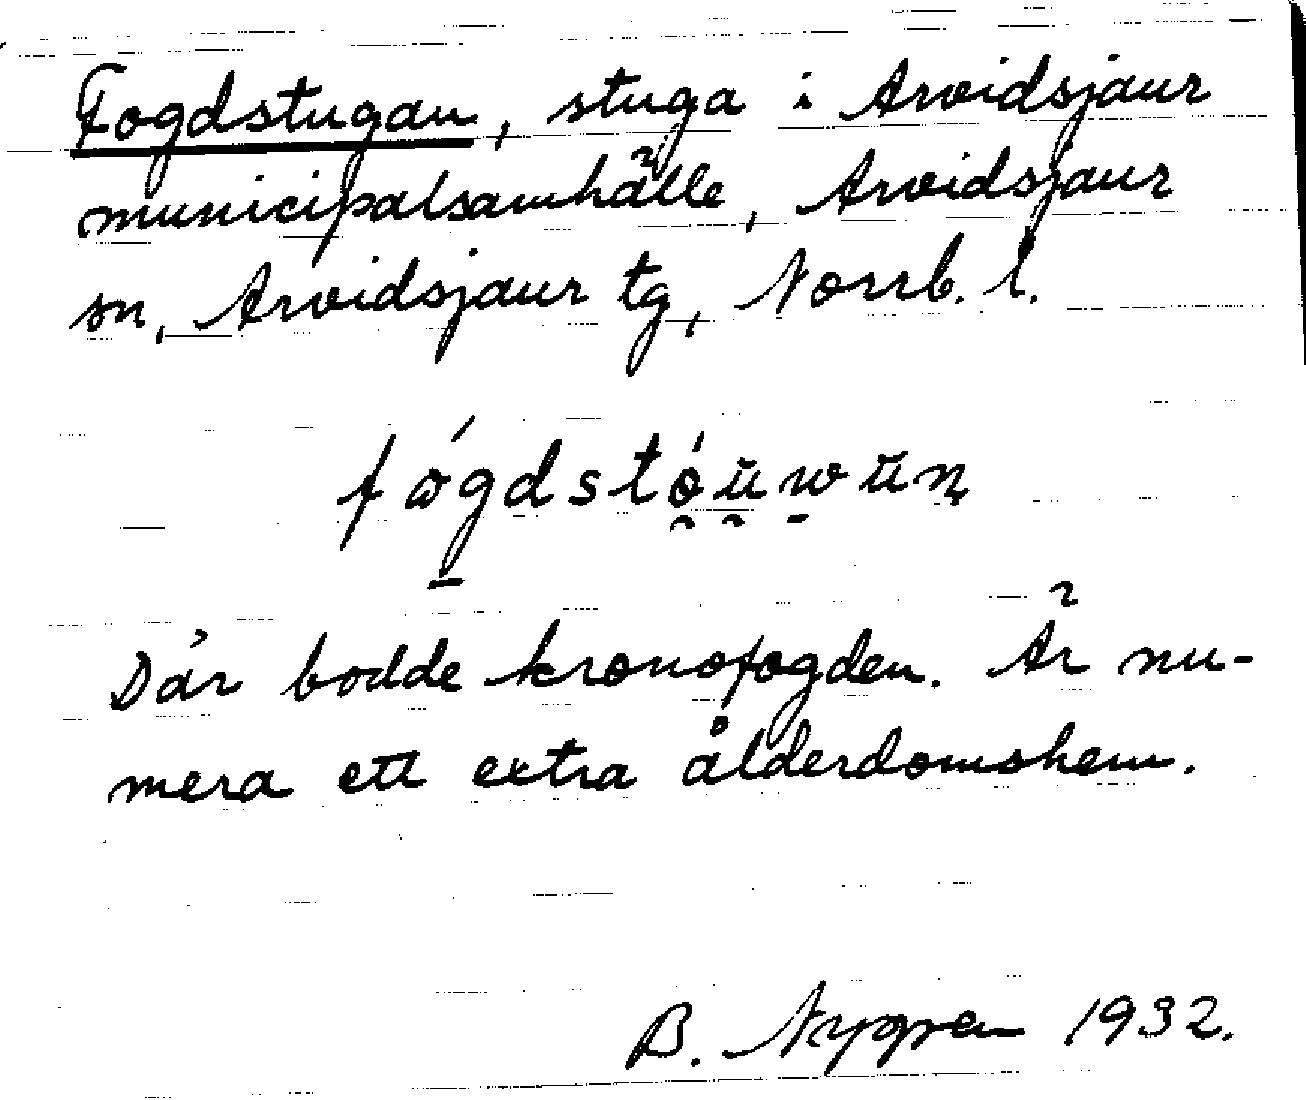 Fogdstugan, stuga i Arvidsjaur
municipalsamhälle, Arvidsjaur
sn, Arvidsjaur tg, Norrb. l.
Där bodde kronofogden. Är nu-
mera ett extra ålderdomshem.
B. Nygren 1932.